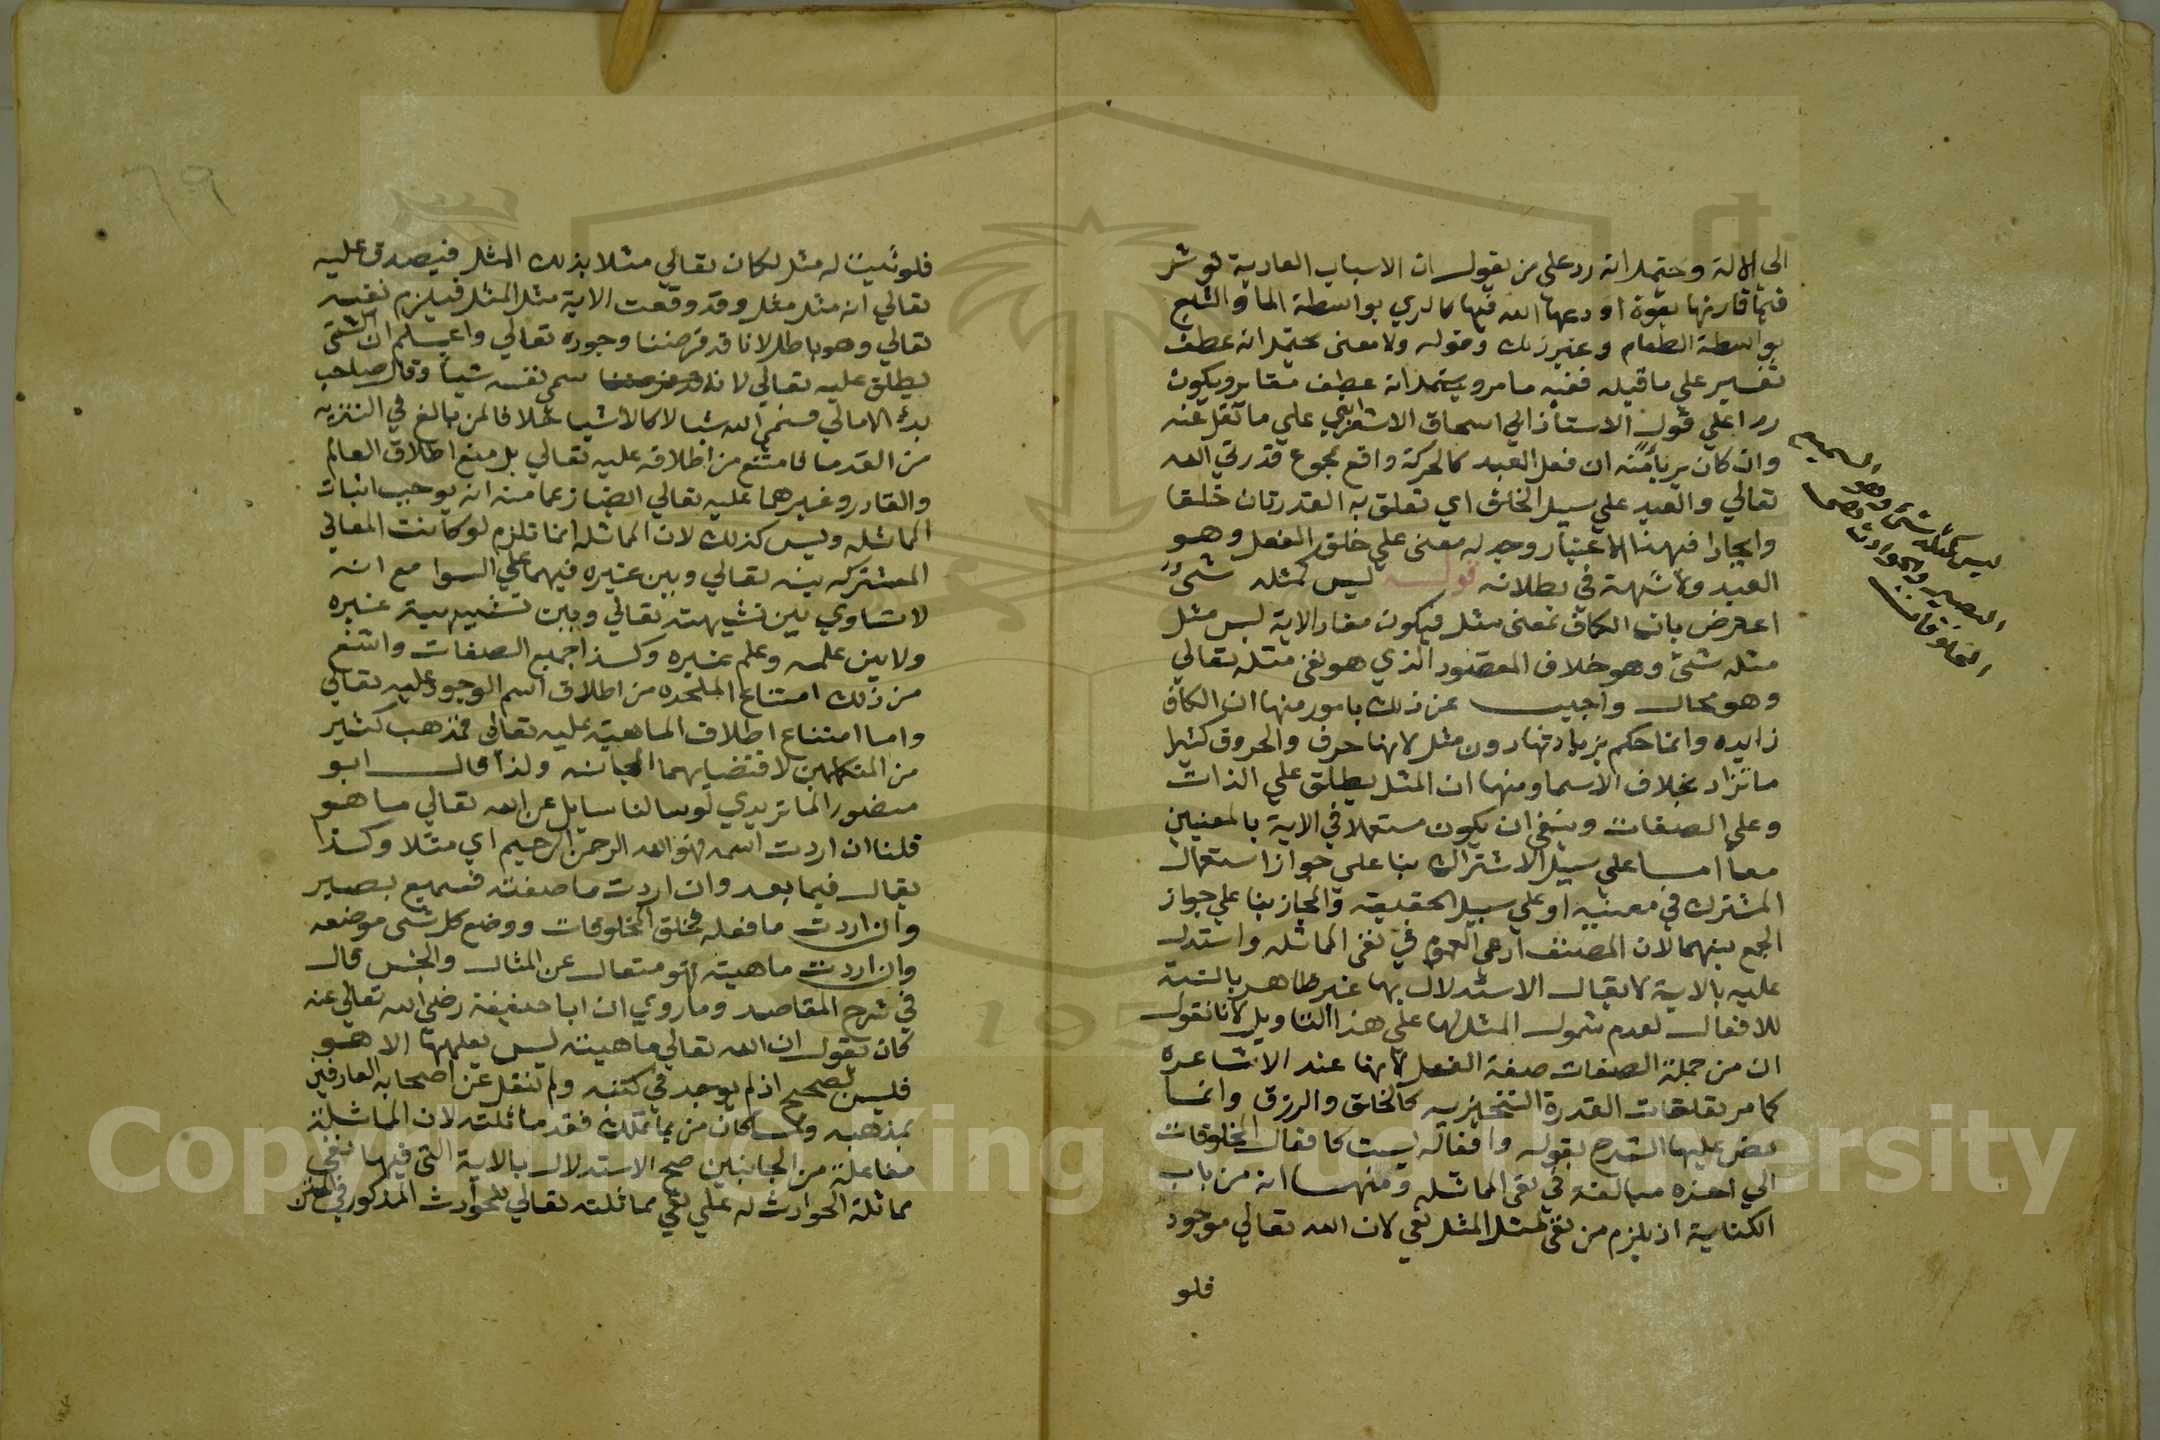 الى الالة ويحتمل انه رد على من يقول ان الاسباب العادية توثر
فيما قارنها بقوة اودعها الله فيها كالري بواسطة الما والشبع
بواسطة الطعام وغير ذلك وقوله ولا معنى يحتمل انه عطف
تفسير على ما قبله ففيه ما مر ويحتمل انه عطف مغاير ويكون
ردا على قول الاستاذ ابي اسحاق الاسفرايني على ما نقل عنه
وان كان بريا منه ان فعل العبد كالحركة واقع بمجموع قدرتي الله
تعالي والعبد علي سبيل الخلق اي تعلق به القدرتان خلقا
وايجادا فبهذا الاعتبار وجد له معنى علي خلق الفعل وهو
العبد ولا شبهة في بطلانه قوله ليس كمثله شيء
اعترض بان الكاف بمعنى مثل فيكون مفاد الاية ليس مثل
مثله شئ وهو خلاف المقصود الذي هو نفي مثله تعالي
وهو محال واجيب عن ذلك بامور منها ان الكاف
زايده وانما حكم بزيادتها دون مثل لانها حرف والحروف كثيرا
ما تزاد بخلاف الاسما ومنها ان المثل يطلق علي الذات
وعلي الصفات وينبغي ان يكون مستعملا في الاية بالمعنيين
معا اما علي سبيل الاشتراك بنا على جواز استعمال
المشترك في معنييه او علي سبيل الحقيقة والمجاز بنا علي جواز
الجمع بينهما لان المصنف ادعى العموم في نفى المماثله واستدل
عليه بالاية لا يقال الاستدلال بها غير ظاهر بالنسبة
للافعال لعدم شمول المثل لها علي هذا التاويل لانا نقول
ان من جملة الصفات صفة الفعل لانها عند الاشاعره
كما مر تعلقات القدرة التنجيزيه كالخلق والرزق وانما
نص عليها الشرح بقوله وافعاله ليست كافعال المخلوقات
الي اخره مبالغة في نفى المماثله ومنها انه من باب
الكناية اذ يلزم من نفى مثل المثل نفي لان الله تعالي موجود
فلو
ليس كمثله شئ وهو السميع
البصير والحوادث
المخلوقات
٦٩
فلو ثبت له مثل لكان تعالي مثلا بذلك المثل فيصدق عليه
تعالي انه مثل مثل وقد وقعت الاية مثل المثل فيلزم نفيه
تعالي وهو باطل لانا قد فرضنا وجوده تعالي واعلم ان الشئ
يطلق عليه تعالي لانه سمى نفسه شيا وقال صاحب
بدء الامالي نسمى الله شيا لا كالاشيا خلافا لمن بالغ في التنزيه
من القدما فامتنع من اطلاقه عليه تعالي بل منع اطلاق العالم
والقادر وغيرهما عليه تعالي ايضا زعما منه انه يوجب اثبات
المماثله وليس كذلك لان المماثله انما تلزم لو كانت المعاني
المشتركه بينه تعالي وبين غيره فيهما علي السوا مع انه
لا تساوي بين شيئيته تعالي وبين شيئية غيره
ولا بين علمه وعلم غيره وكذا جميع الصفات واشنع
من ذلك امتناع الملحده من اطلاق اسم الوجود عليه تعالي
واما امتناع اطلاق الماهية عليه تعالى فمذهب كثير
من المتكلمين لاقتضايهما المجانسه ولذا قال ابو
منصور الماتريدي لو سالنا سايل عن الله تعالي ما هو
قلنا ان اردت اسمه فهو الله الرحمن الرحيم اي مثلا وكذا
يقال فيما بعد وان اردت ما صفته فسميع بصير
وان اردت ما فعله فخلق المخلوقات ووضع كل شى موضعه
وان اردت ماهيته فهو متعال عن المثال والجنس قال
في شرح المقاصد وما روي ان ابا حنيفة رضي الله تعالي عنه
كان يقول ان الله تعالي ماهيته ليس يعلمها الا هو
فليس بصحيح اذ لم يوجد في كتبه ولم ينقل عن اصحابه العارفين
بمذهبه ولما كان من يماثلك فقد ماثلته لان المماثلة
مفاعلة من الجانبين صح الاستدلال بالاية التي فيها نفي
مماثلة الحوادث له علي نفي مماثلته تعالي للحوادث المذكور في المتن